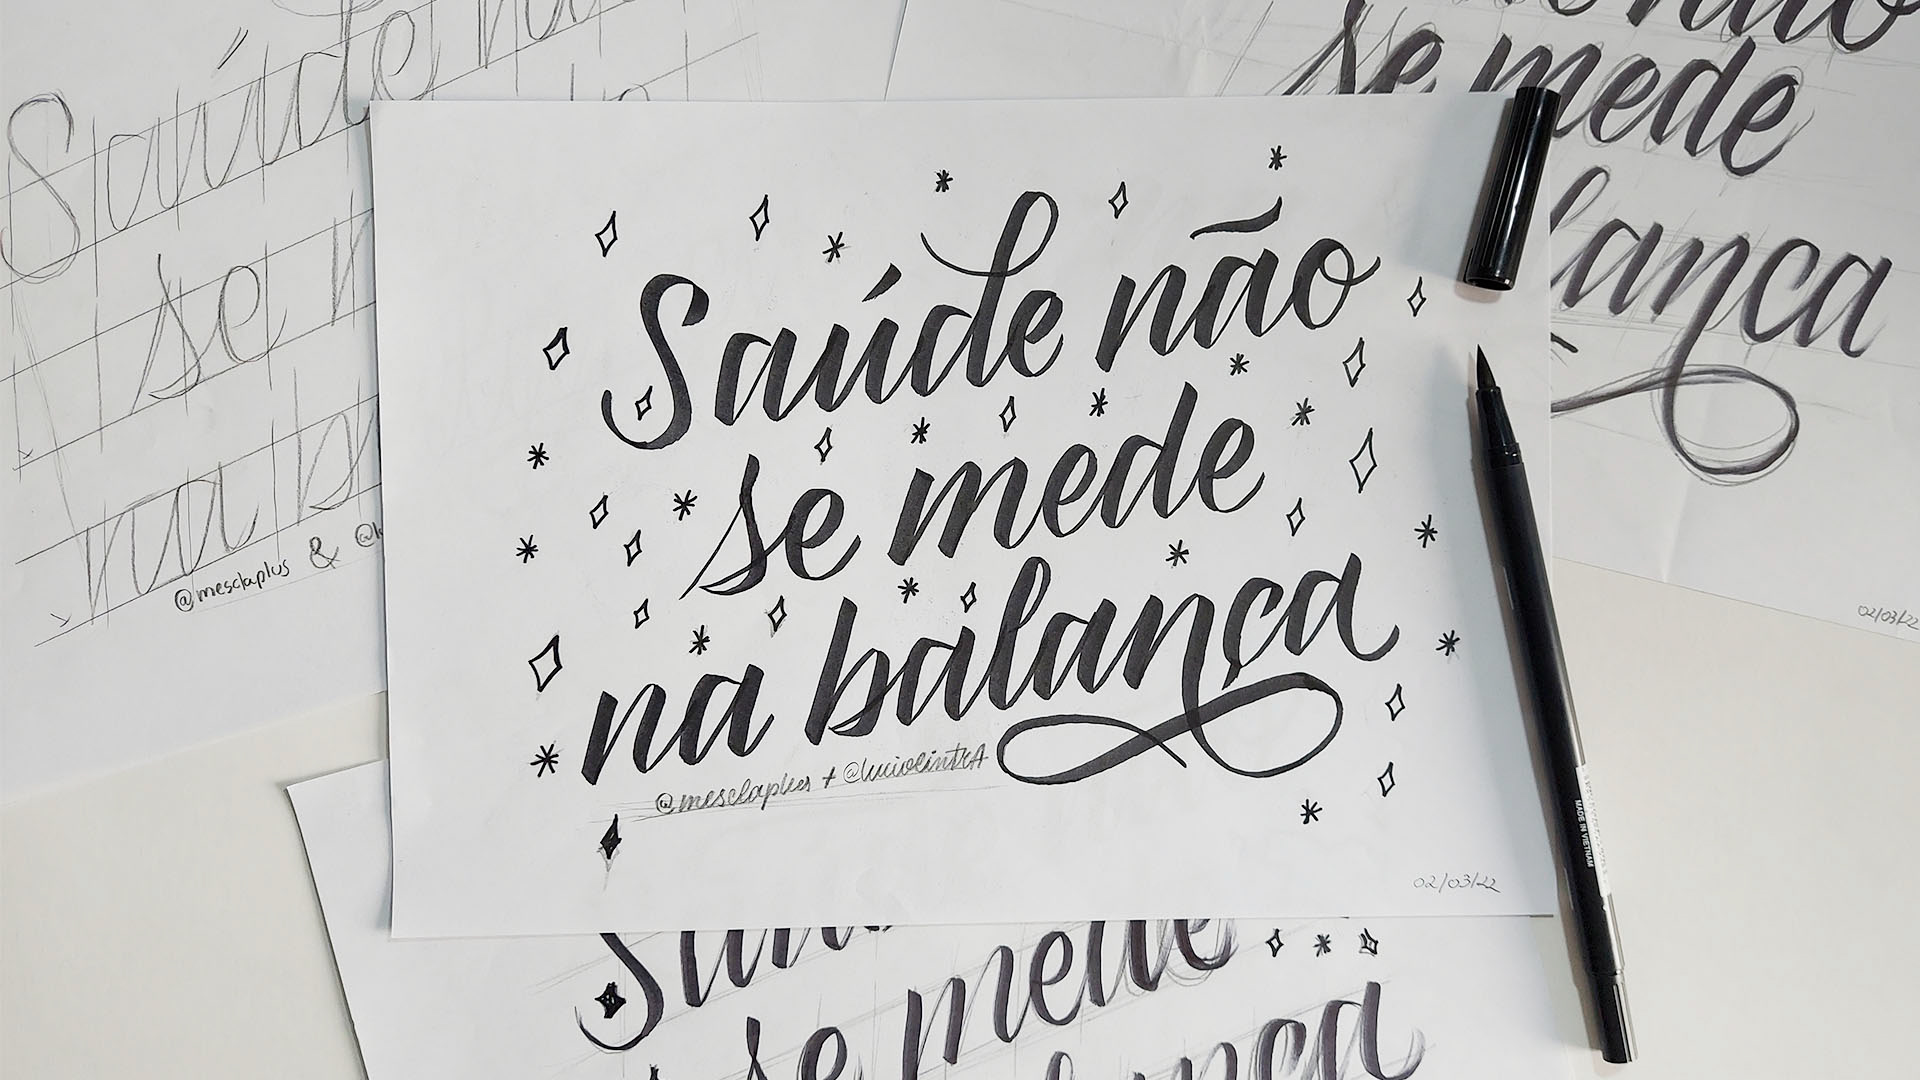 Saúde
se
na
@mesclaplus &
não
se mede
balança
02/03/22
Saúde não
se mede
na balança
@mesclaplus + @luciocintra
02/03/22
MADE IN VIETNAM
se mede